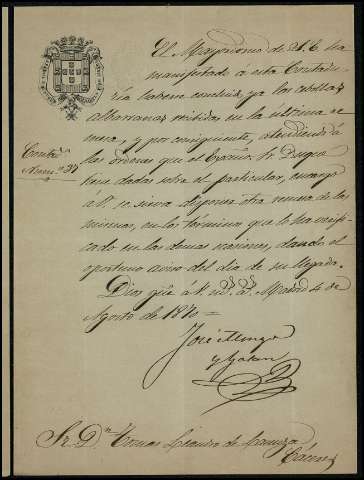 El Mayordomo de S. E. ha
manifestado á esta Contadu-
ría haberse concluido ya las cebollas
albarranas recibidas en la última re-
mesa, y por consiguiente, atendiendo á
Contad.ª
Núm.º 37
las órdenes que el Excmo. Sr. Duque
tiene dadas sobre el particular, encargo
á V. se sirva disponer otra remesa de las
mismas, en los términos que lo ha verifi-
cado en las demas ocasiones, dando el
oportuno aviso del dia de su llegada.
Dios gue á V. m.s a.s Madrid 4 de
Agosto de 1870 =
José
y
Sr. D.n Tomas de
Cáceres